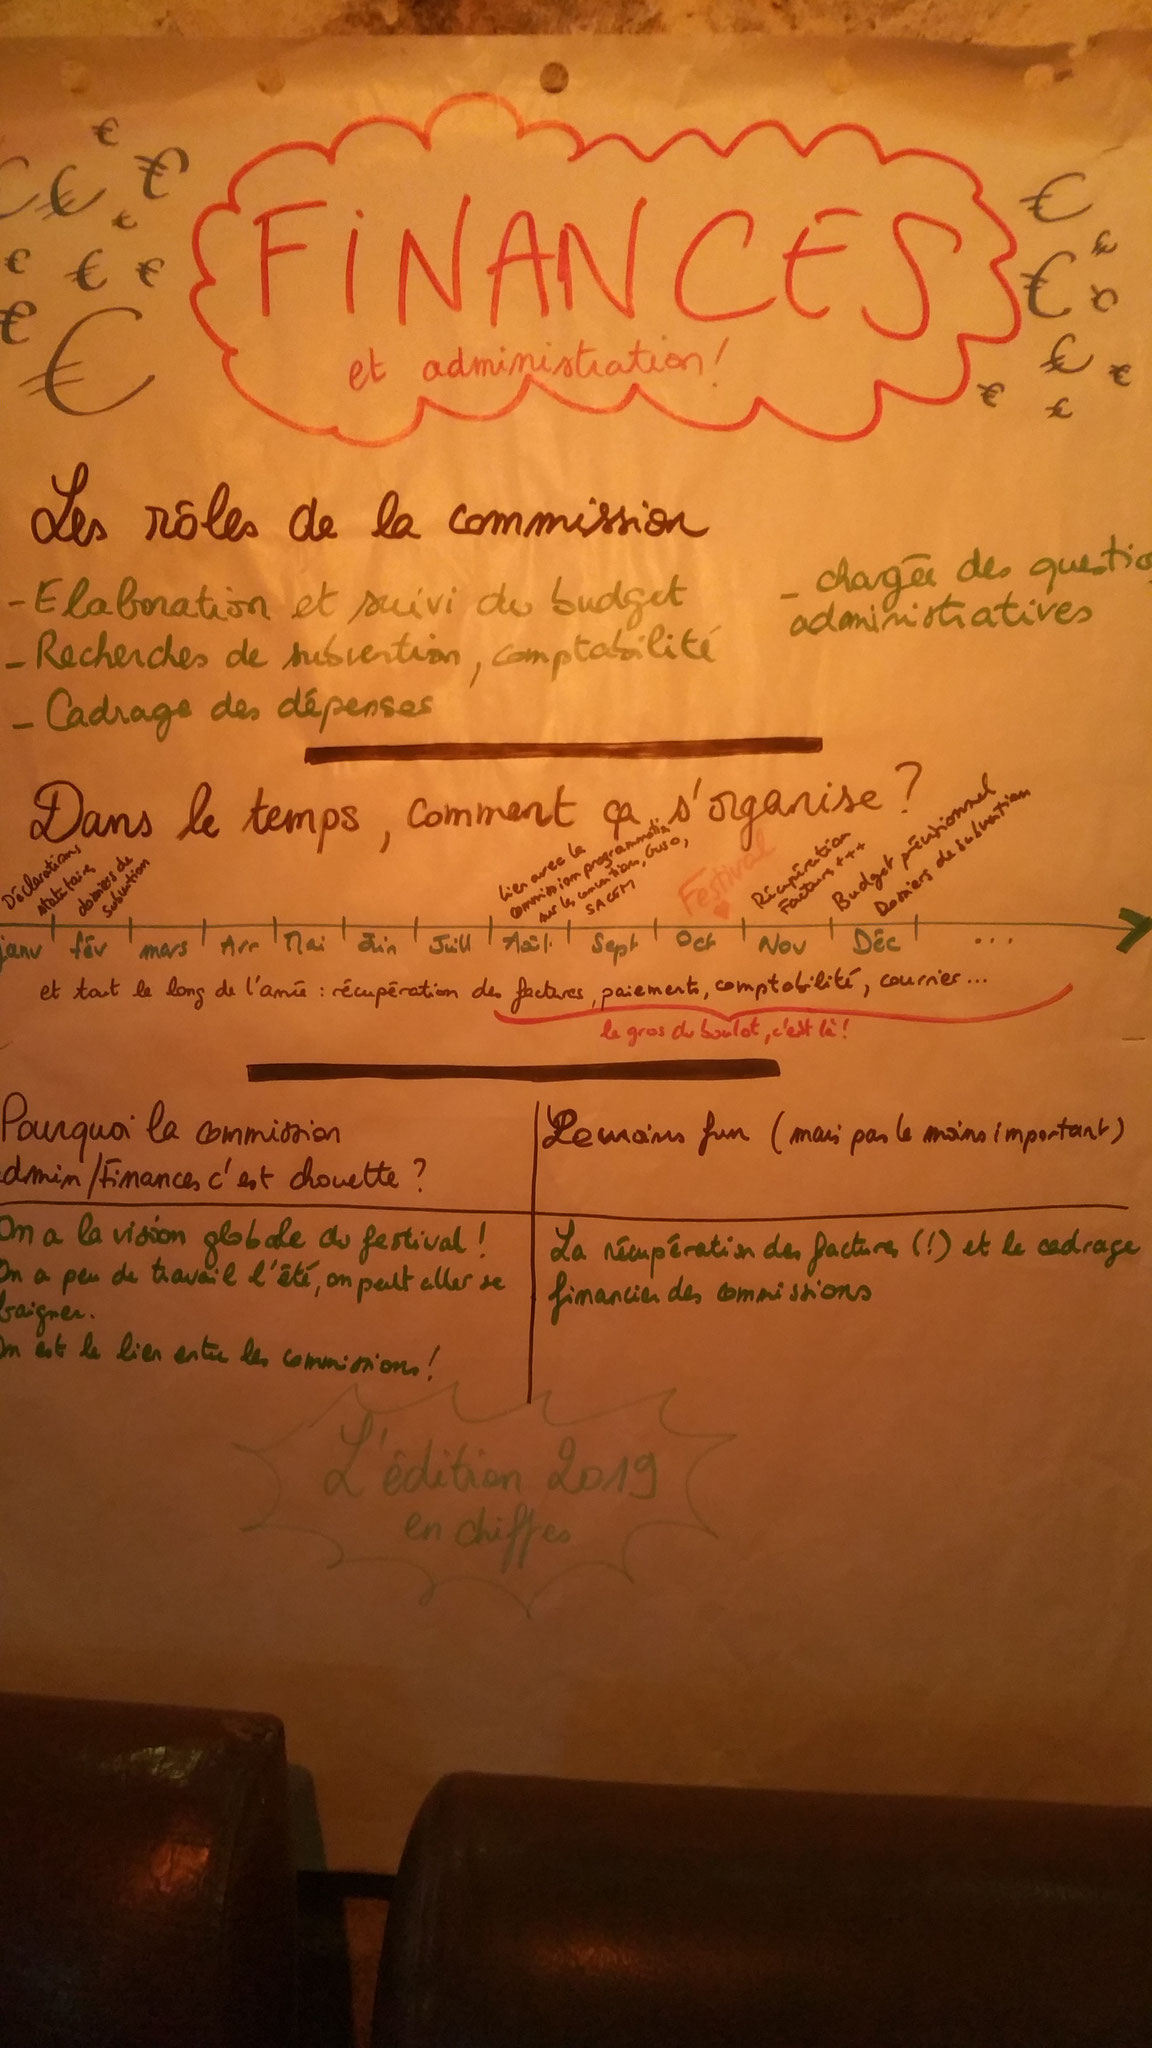 FINANCES
et administration!
Les rôles de la commission
- Elaboration et suivi du budget
- Recherches de subvention, comptabilité
- Cadrage des dépenses
- chargée des questio
administratives
Dans le temps, comment ça s'organise ?
Déclarations
statutaire,
dossiers de
subvention
lien avec la
commission programmation
sur les convention, Guso,
SACEM
Festival
Récupération
Factures +++
Budget prévisionnel
Dossiers de subvention
janv fév mars Avr Mai Juin Juill Août Sept Oct Nov Déc ...
et tout le long de l'année : récupération des factures, paiements, comptabilité, courrier...
le gros du boulot, c'est là !
Pourquoi la commission
admin/Finances c'est chouette ?
On a la vision globale du festival !
On a peu de travail l'été, on peut aller se
baigner.
On est le lien entre les commissions !
Le moins fun (mais pas le moins important)
La récupération des factures (!) et le cadrage
financier des commissions
L'édition 2019
en chiffres